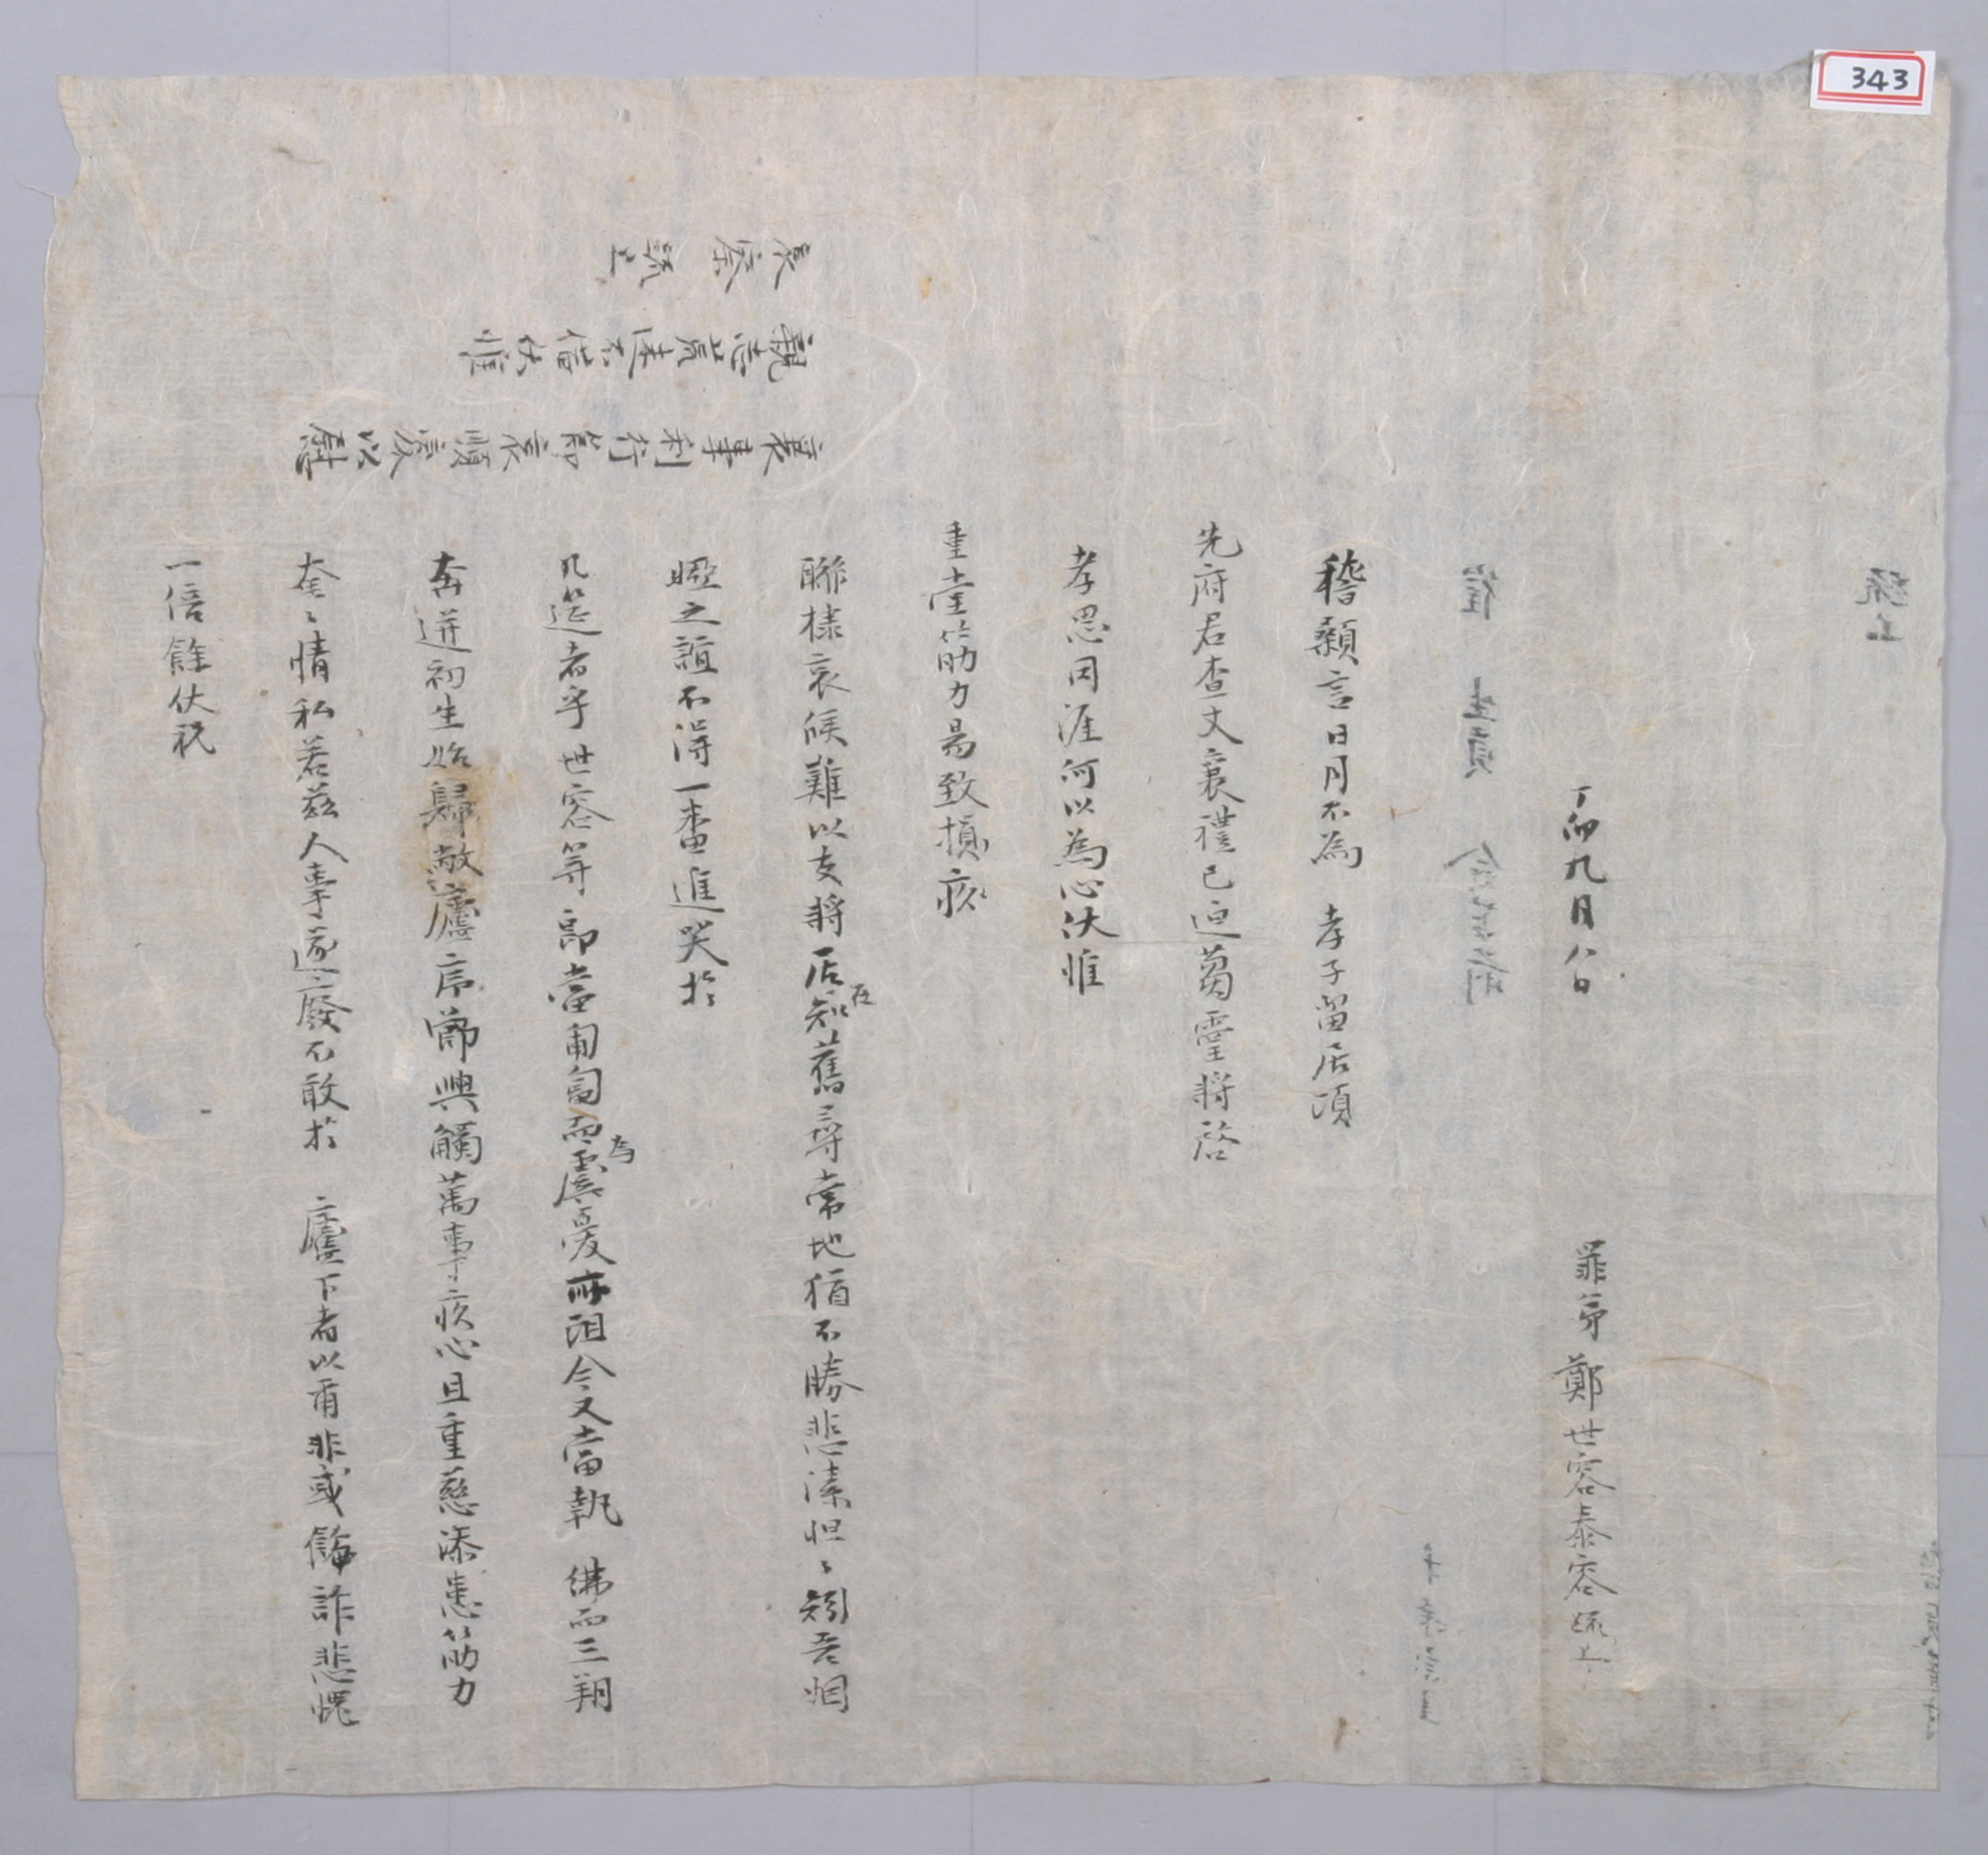 343
稽顙言日月不為 孝子留居頃
先府君查丈襄禮已迫蒭靈將啓
孝思罔涯何以為心伏惟
重堂筋力易致損疚
聯棣哀候難以支將居在知舊尋常地猶不勝悲溱怛〻矧吾姻
婭之誼不得一番進哭於
几筵者乎世容等即當匍匐而為虞憂亦阻今又當執 紼而三翔
奔迸初生始歸敝廬序節興觸萬事疚心且重慈添患筋力
奎〻情私若玆人事遂廢不敢於 廬下者以甭非或餙詐悲愧
一倍餘伏祝
襄事利行節哀順變以慰
親志荒迷不備伏惟
哀察 疏上
丁卯九月八日
罪弟 鄭世容泰容疏上
崔 生員
疏上